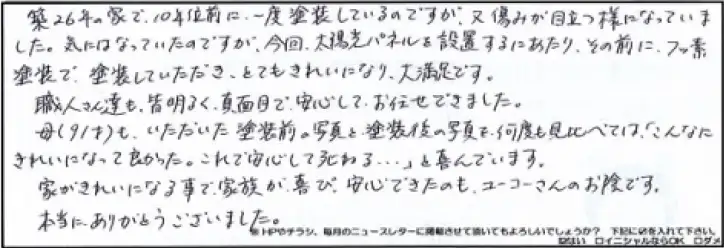 築26年の家で、10年位前に、一度塗装しているのですが、又傷みが目立つ様になっていま
した。気にはなっていたのですが、今回、太陽光パネルを設置するにあたり、その前に、フッ素
塗装で、塗装していただき、とてもきれいになり、大満足です。
職人さん達も、皆明るく、真面目で、安心して、お任せできました。
母(91才)も、いただいた塗装前の写真と、塗装後の写真を、何度も見比べては、「こんなに
きれいになって良かった。これで安心して死ねる・・・」と喜んでいます。
家がきれいになる事で、家族が、喜び、安心できたのも、ユーコーさんのお陰です。
本当に、ありがとうございました。
※HPやチラシ、毎月のニュースレターに掲載させて頂いてもよろしいでしょうか? 下記に☑を入れて下さい。
☑はい □イニシャルならOK □ダメ